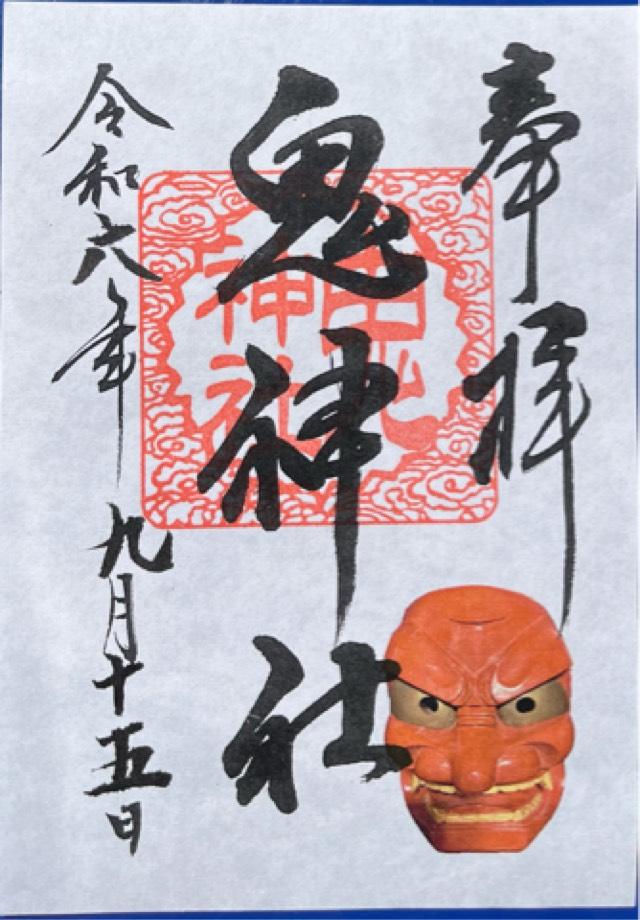 奉拝
鬼神社
令和六年 九月十五日
鬼神社